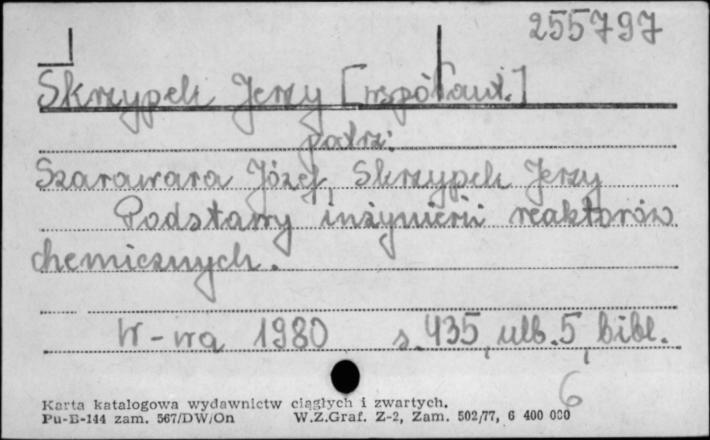 255797
Skrzypek Jerzy [współaut.]
patrz:
Szarawara Józef, Skrzypek Jerzy
Podstawy inżynierii reaktorów
chemicznych.
W-wa 1980 s. 435, ulb. 5, bibl.
6
Karta katalogowa wydawnictw ciągłych i zwartych.
Pu-B-144 zam. 567/DW/On W.Z.Graf. Z-2, Zam. 502/77, 6 400 000